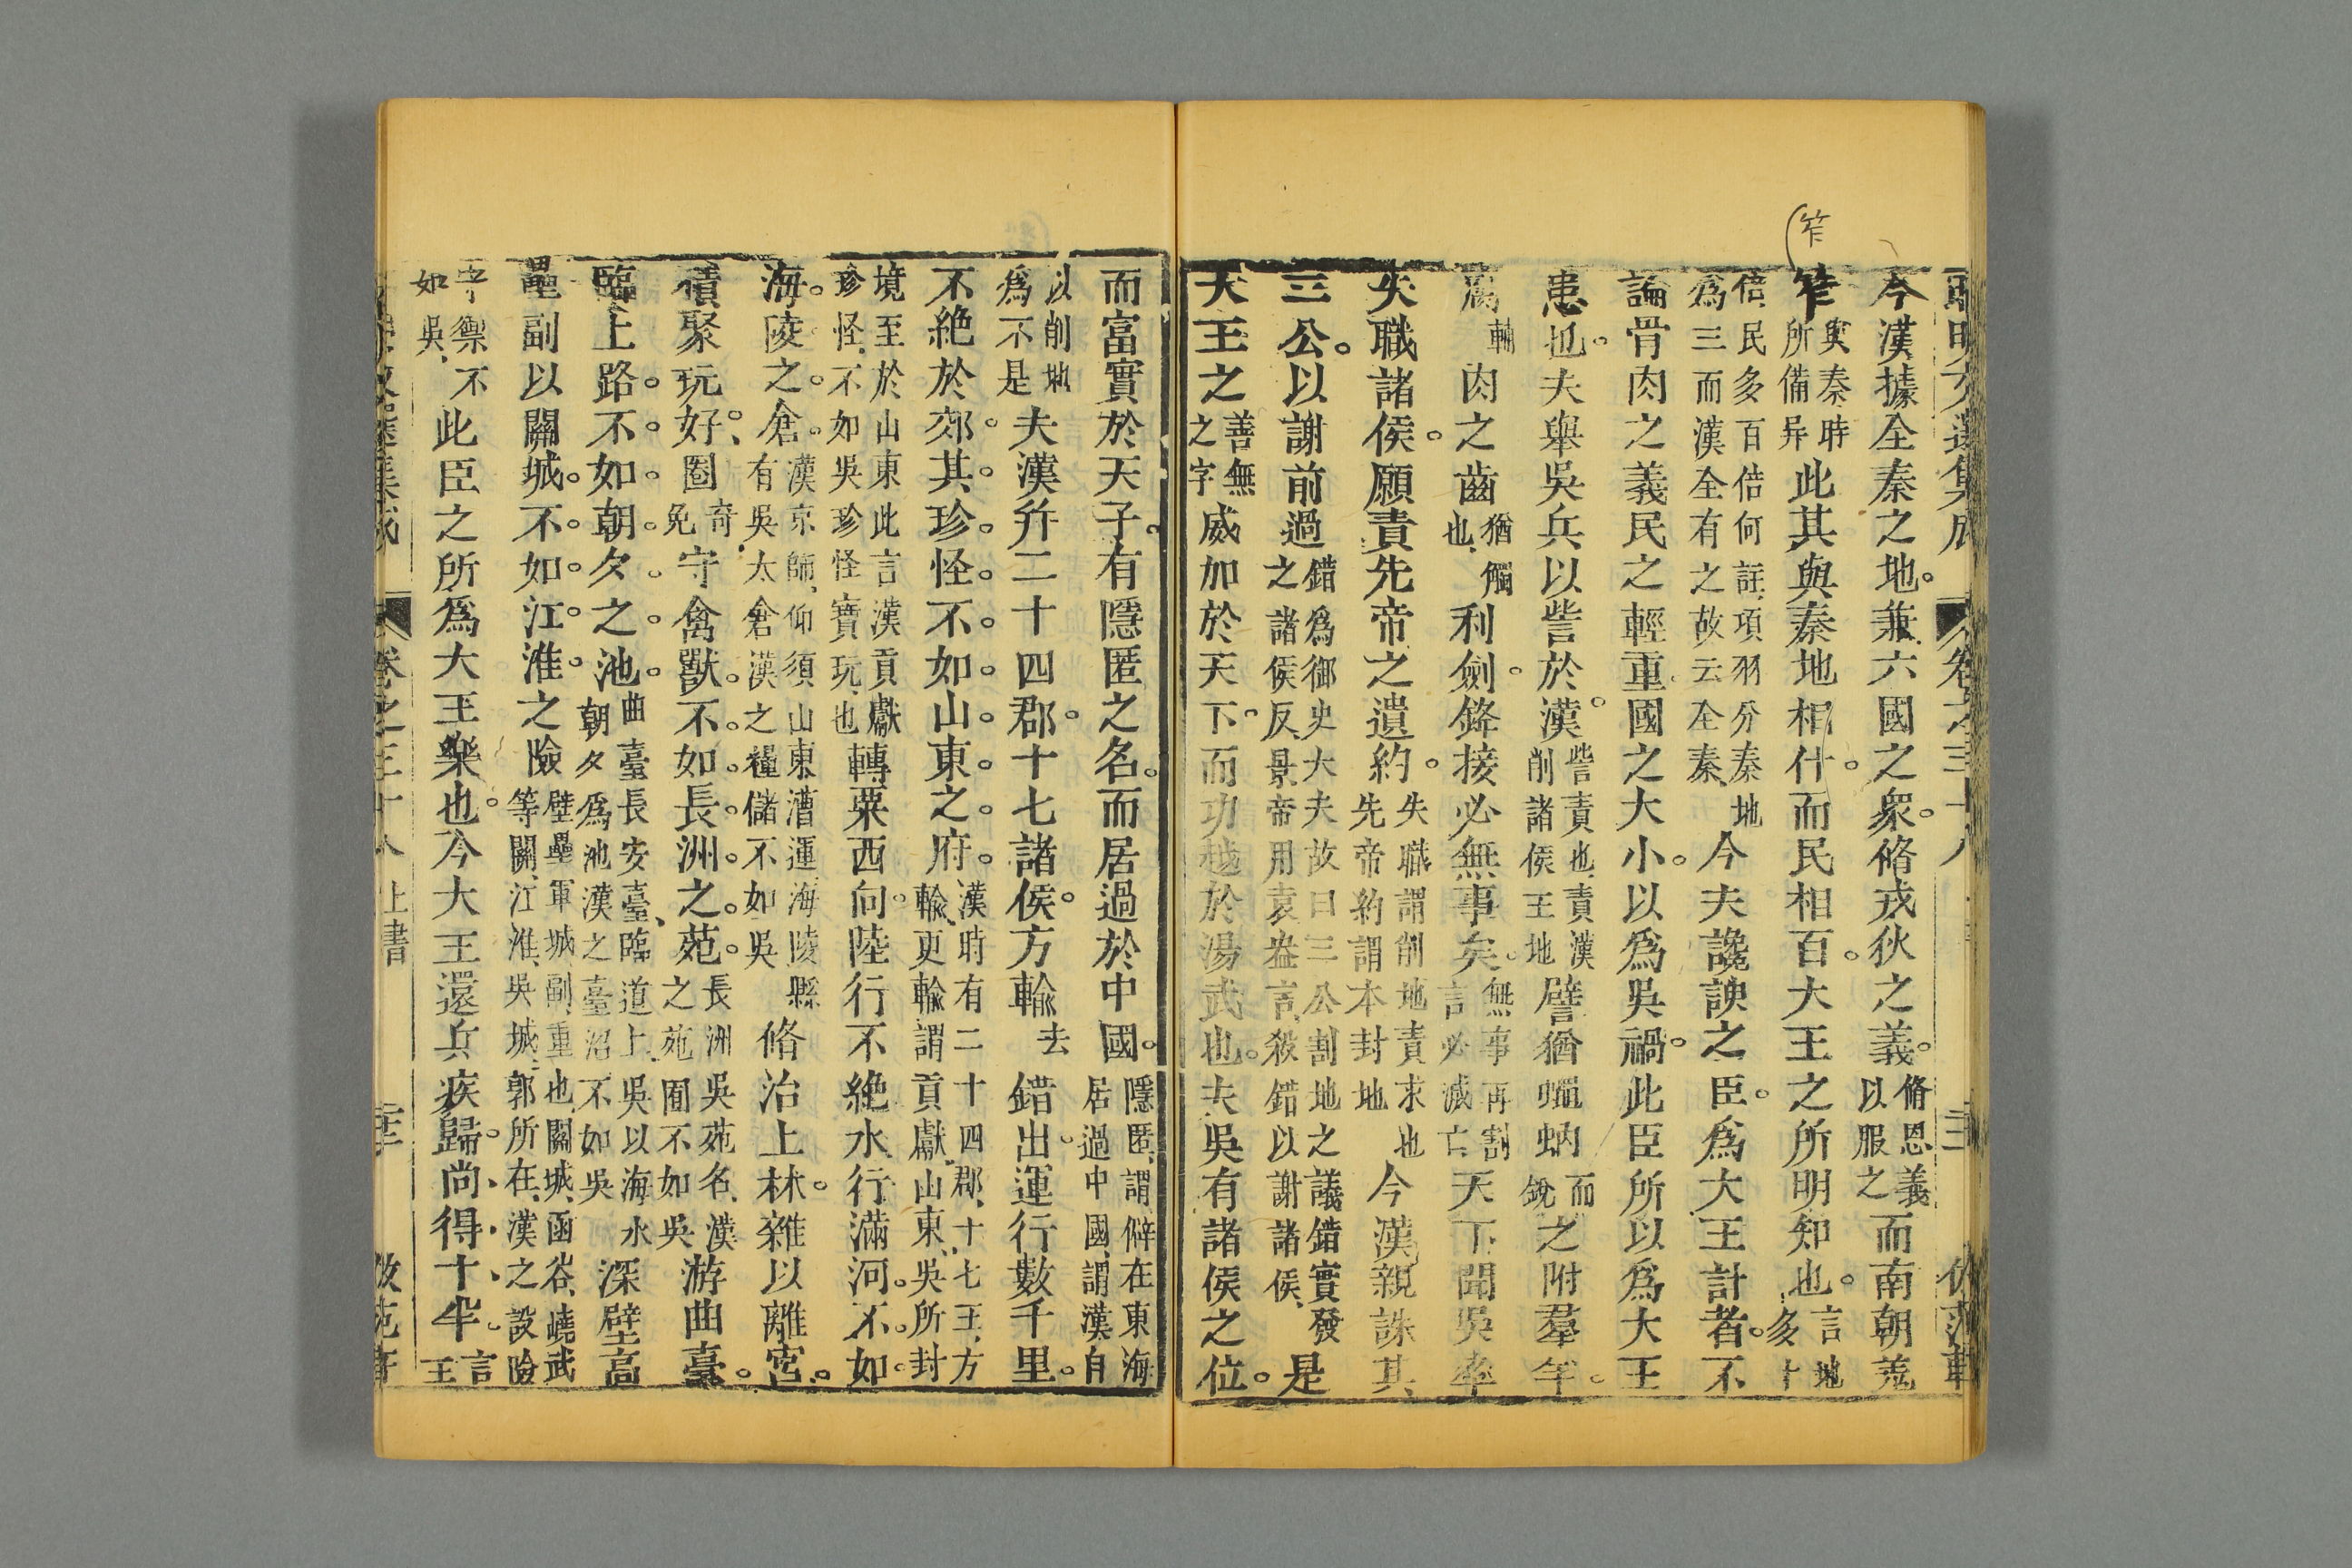 昭明文選集成 卷之三十八
今漢據全秦之地。兼六國之衆。脩戎狄之義。脩恩義以服之而南朝羌
笮與秦時所備异此其與秦地相什。而民相百。大王之所明知也。言地多十
倍民多百倍何註、項羽分秦地為三而漢全有之故云全秦、今夫讒諛之臣。爲大王計者。不
論骨肉之義民之輕重。國之大小。以爲吳禍。此臣所以爲大王
患也。夫舉吳兵以訾於漢。訾責也責漢削諸侯王地譬猶蠅蚋而銳之附羣牛。
腐輔肉之齒猶觸也、利劍。鋒接必無事矣。無事再割言必滅亡天下聞吳率
失職諸侯。願責先帝之遺約。失職謂削地責求也先帝約謂本封地今漢親誅其
三公。以謝前過錯爲御史大夫故曰三公割地之議錯實發之諸侯反景帝用袁盎言殺錯以謝諸侯、是
大王之善無之字威加於天下。而功越於湯武也。夫吳有諸侯之位。
而富實於天子。有隱匿之名。而居過於中國。隱匿、謂僻在東海居過中國、謂漢自
以削地爲不是夫漢幷二十四郡。十七諸侯。方輸去錯出。運行數千里。
不絶於郊。其珍怪。不如山東之府。漢時有二十四郡、十七王、方輸、更輸謂貢獻、山東、吳所封
境至於山東此言漢貢獻珍怪、不如吳珍怪寶玩、也轉粟西向。陸行不絶水行滿河。不如
海陵之倉。漢京師、仰須山東漕運海陵縣有吳太倉漢之糧儲不如吳脩治上林。雜以離宮。
積聚玩好、圈奇免守禽獸。不如長洲之苑。長洲吳苑名、漢之苑囿不如吳游曲臺。
臨上路。不如朝夕之池。曲臺長安臺、臨道上、吳以海水朝夕爲池漢之臺沼不如吳深壁高
壘副以關城。不如江淮之險壁壘軍城副、重也關城、函谷、嶢武等關、江淮、吳城、郭所在、漢之設險
字禦不如吳、此臣之所爲大王樂也。今大王還兵疾歸。尚得十半。言王
文選集成 卷之三十八 上書
笮